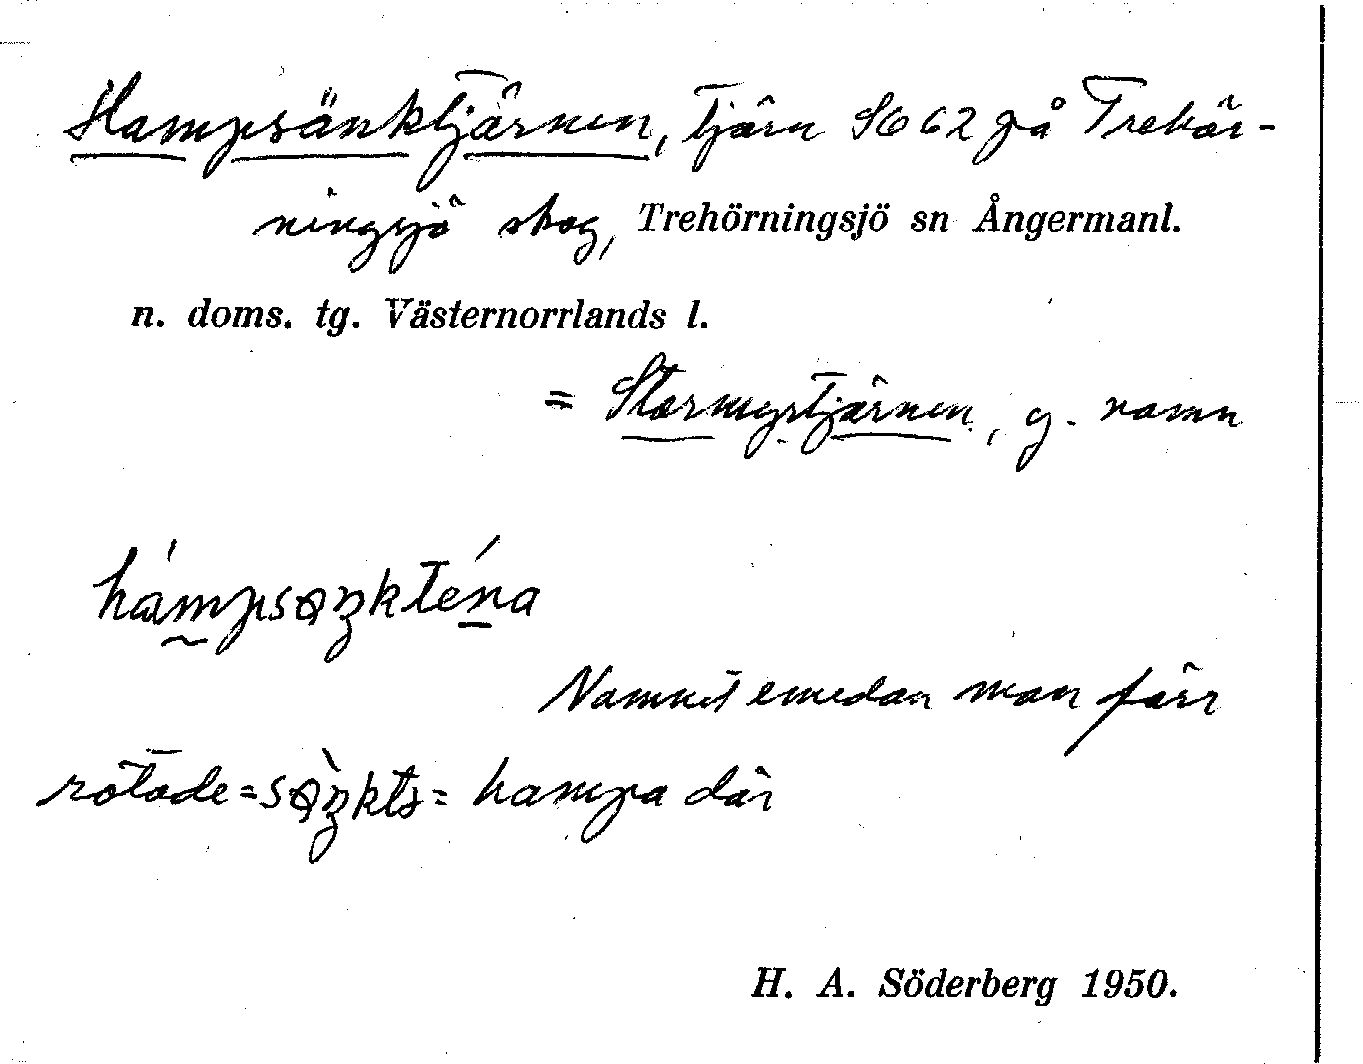 Hampsänktjärnen, Tjärn S662 på Trehör-
ningsjö skog, Trehörningsjö sn Ångermanl.
n. doms. tg. Västernorrlands l.
= Stormyrtjärnen, g. namn
Namnet emedan man förr
rötade = hampa där
H. A. Söderberg 1950.